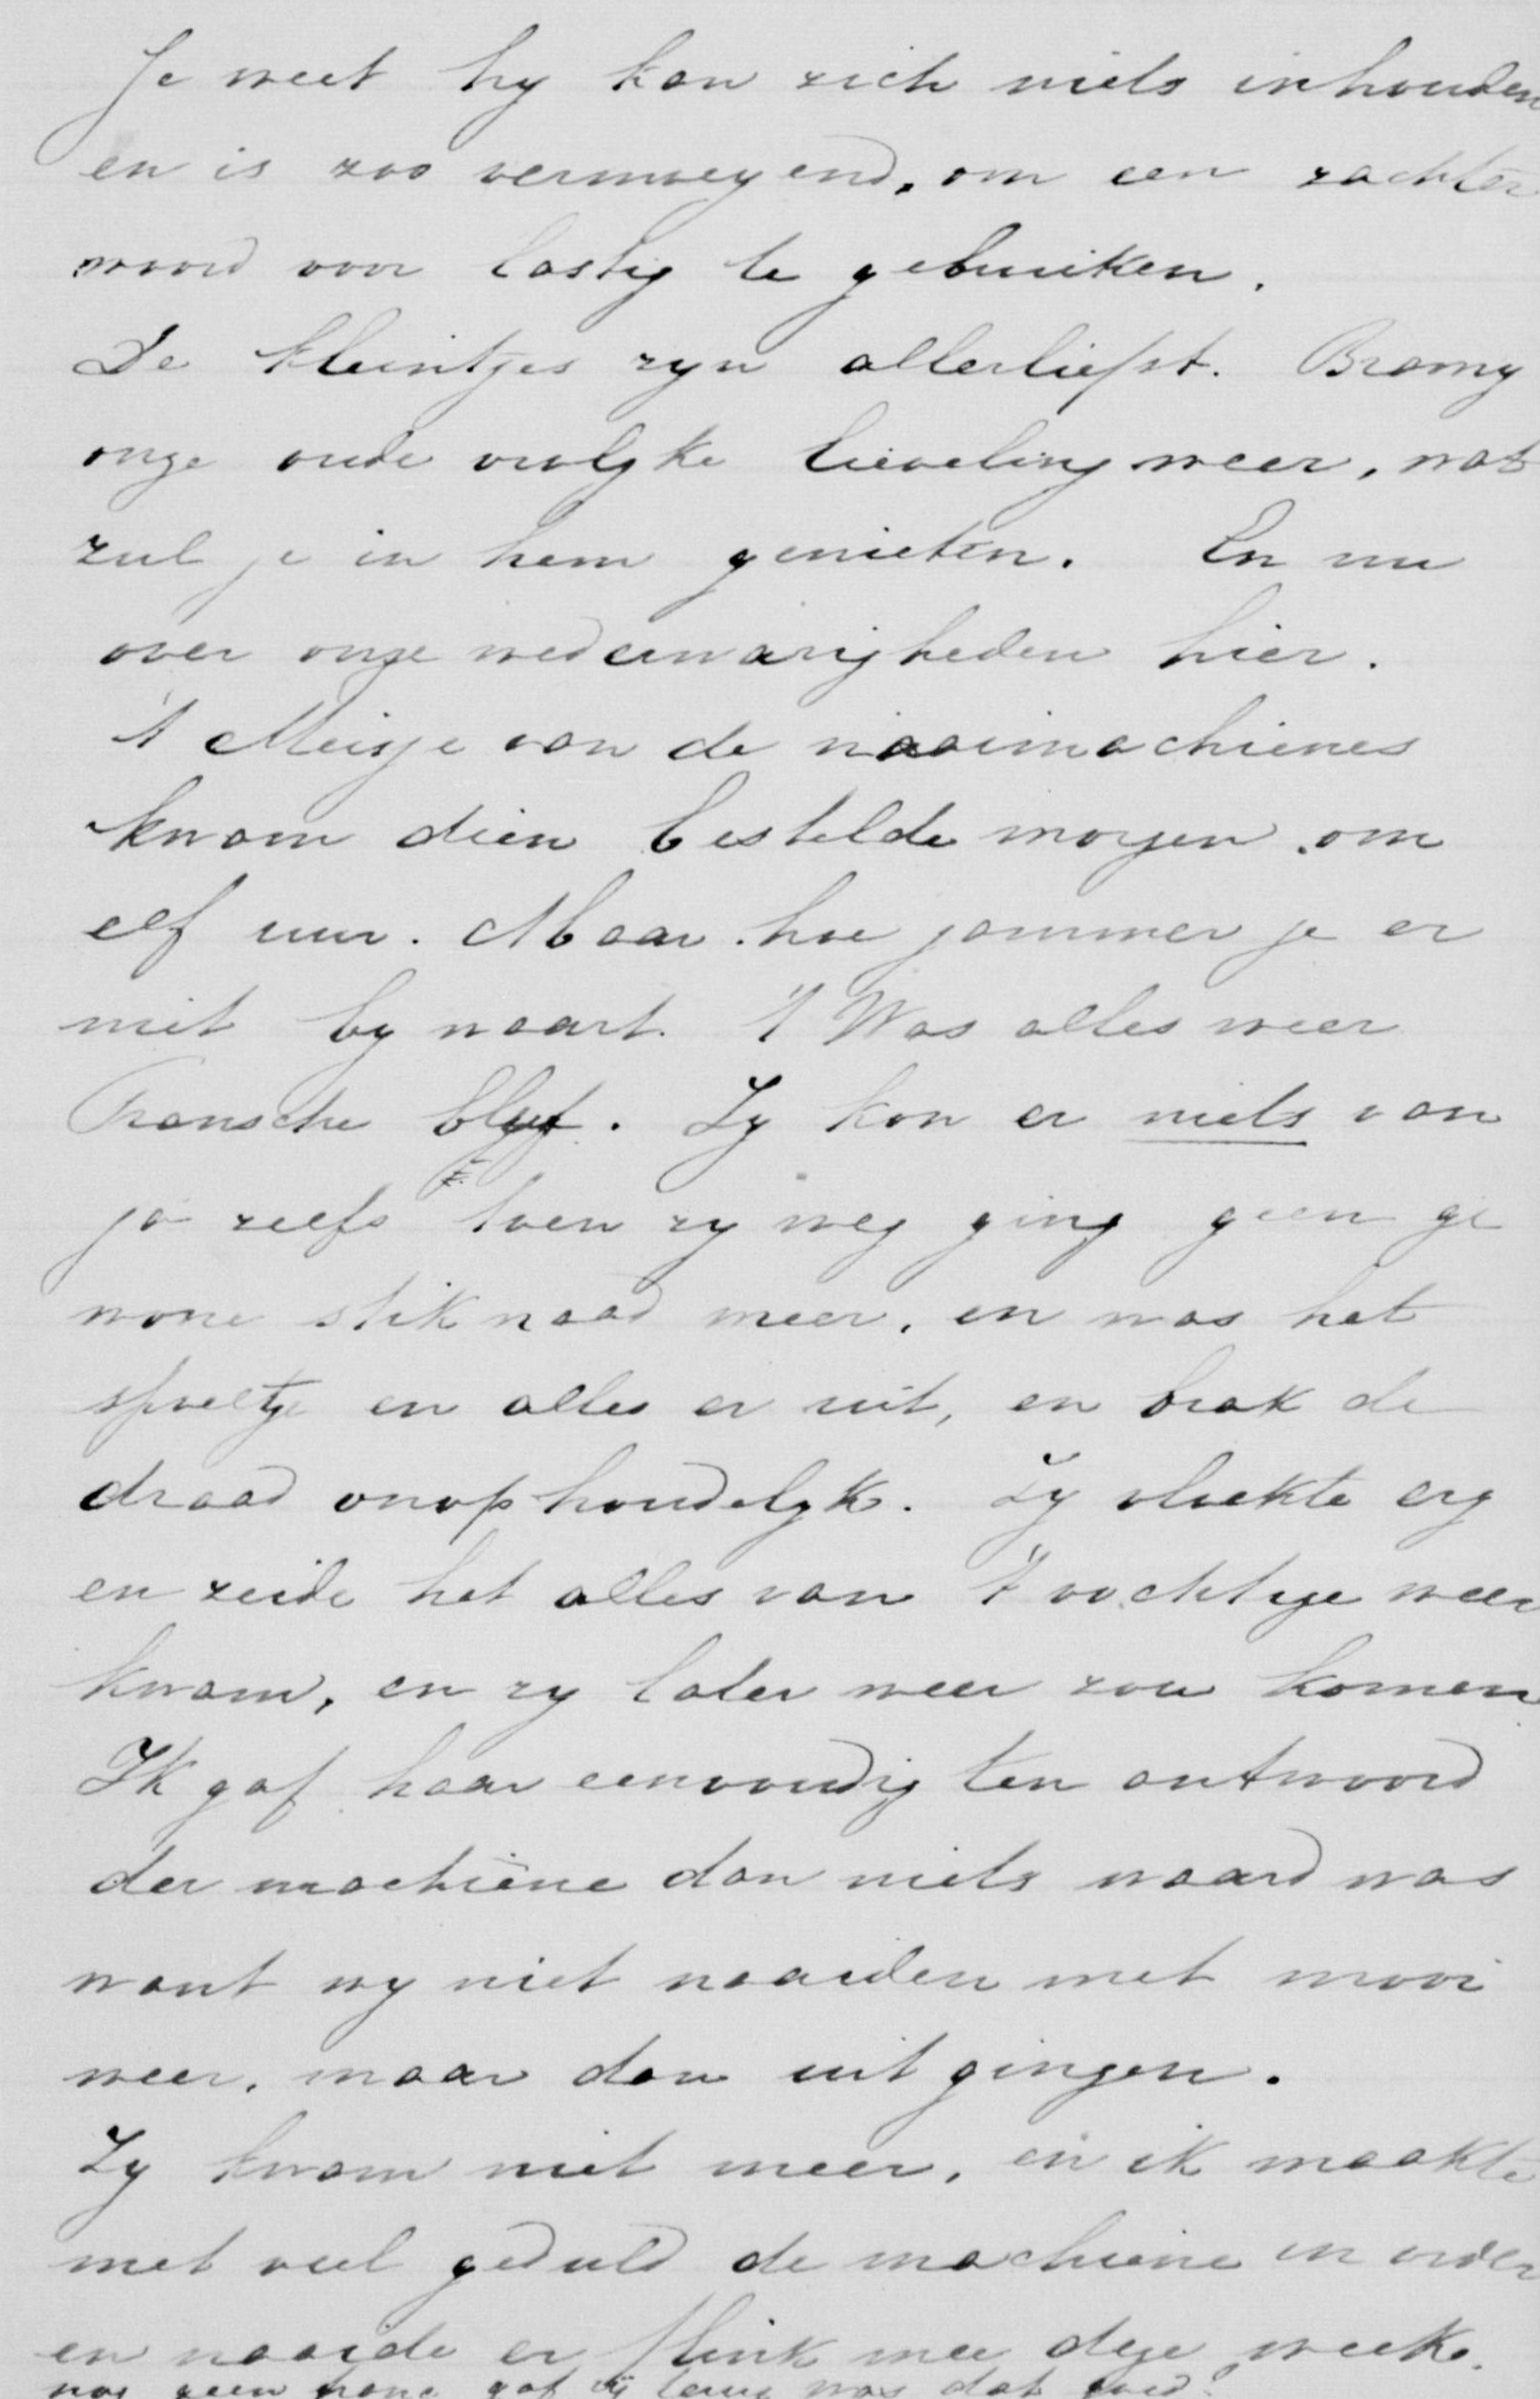 Je weet hy kan zich niets inhouden
en is zoo vermoeyend, om een zachter
woord voor lastig te gebruiken.
De kleintjes zyn allerliefst. Bramy
onze oude vrolyke lieveling weer, wat
zul je in hem genieten. En nu
over onze wederwarigheden hier.
't Meisje van de naaimachienes
kwam dien bestelde morgen om
elf uur. Maar hoe jammer je er
niet by waart. 't Was alles weer
Fransche bluf. Zy kon er niets van
ja zelfs toen zy weg ging geen ge
wone stiknaad meer, en was het
spoeltje en alles er uit, en brak de
draad onophoudelyk. Zy vloekte erg
en zeide het alles van 't vochtige weer
kwam, en zy later weer zou komen
Ik gaf haar eenvoudig ten antwoord
der machiene dan niets waard was
want wy niet naaiden met mooi
weer, maar dan uit gingen.
Zy kwam niet meer, en ik maakte
met veel geduld de machiene in order
en naaide er flink mee deze week.
nog geen gaf zy terug was dat goed?